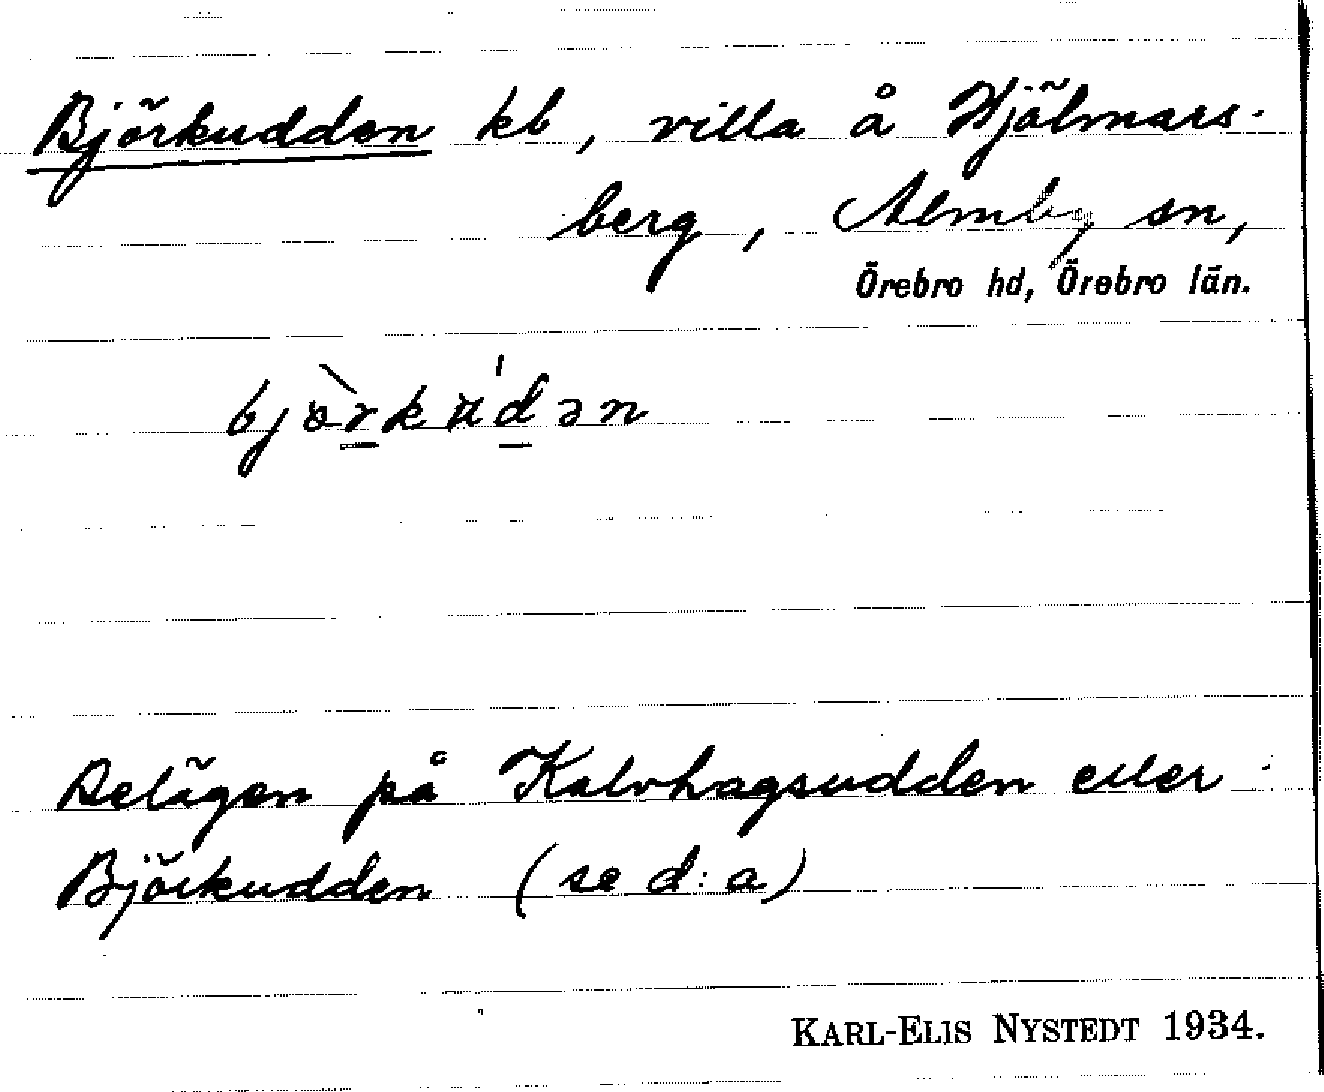 Björkudden kb, villa å Hjälmars-
berg, Almby sn,
Örebro hd, Örebro län.
bjò̱rkuḏ́ən
Belägen på Kalvhagsudden eller
Björkudden (se d:a)
KARL-ELIS NYSTEDT 1934.